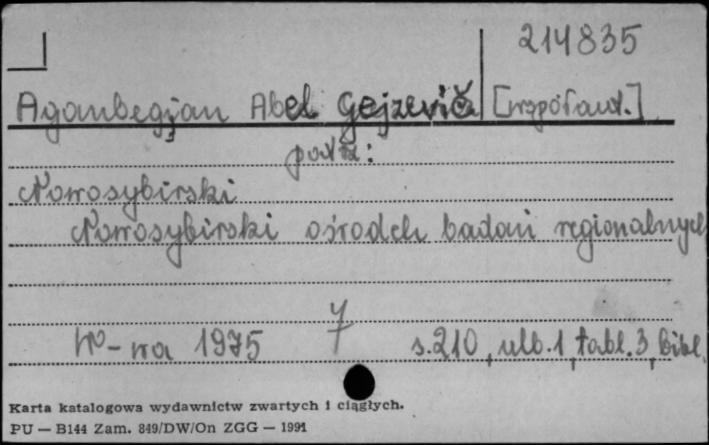 214835
Aganbegjan Abel Gejzevič [współaut.]
patrz:
Nowosybirski
Nowosybirski ośrodek badań regionalnych
W-wa 1975 7 s.210, ulb.1, tabl.3, bibl.
Karta katalogowa wydawnictw zwartych i ciągłych.
PU — B144 Zam. 849/DW/On ZGG — 1991